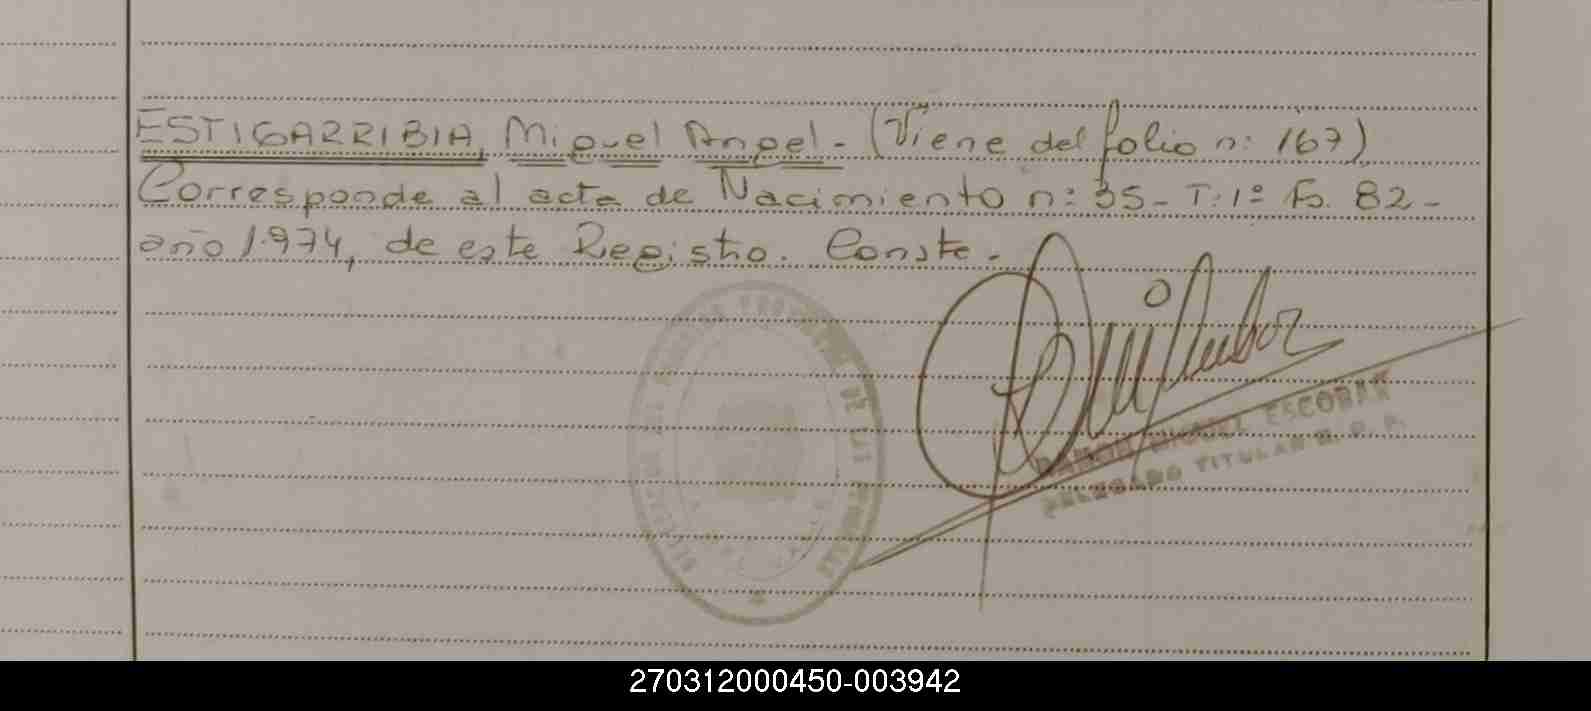 ESTIGARRIBIA, Miguel Angel.- (Viene del folio n: 167)
Corresponde al acta de Nacimiento n: 35- T: 1º Fo. 82-
año 1.974, de este Registro. Conste.-
RAMON MIGUEL ESCOBAR
DELEGADO TITULAR R. P. P.
DE LAS PERSONAS
270312000450-003942